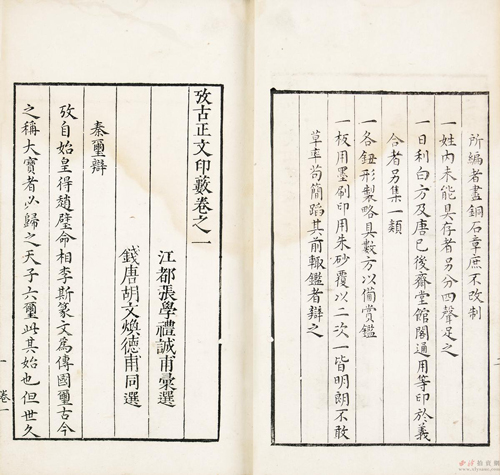 所編者盡銅石章庶不改制
一姓内未能具存者另分四聲足之
一日利白方及唐已後齋堂館閣通用等印於義
合者另集一類
一各鈕形製略具數方以備賞鑑
一板用墨刷印用朱砂覆以二次一皆明朗不敢
草率苟簡蹈其前輙鑑者辯之
攷古正文印藪卷之一
江都張學禮誠甫彙選
錢唐胡文煥德甫同選
秦璽辯
攷自始皇得趙璧命相李斯篆文爲傳國璽古今
之稱大寶者必歸之天子六璽此其始也但世久
卷一
一